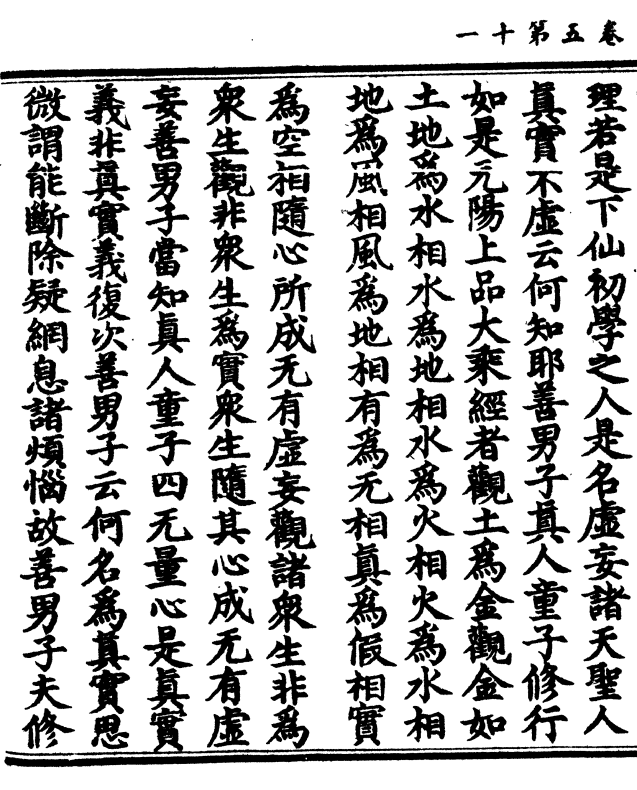 卷五第十一
理若是下仙初學之人是名虛妄諸天聖人
眞實不虛云何知耶善男子眞人童子修行
如是元陽上品大乘經者觀土爲金觀金如
土地爲水相水爲地相水爲火相火爲水相
地爲風相風爲地相有爲无相眞爲假相實
爲空相隨心所成无有虛妄觀諸衆生非爲
衆生觀非衆生爲實衆生隨其心成无有虛
妄善男子當知眞人童子四无量心是眞實
義非眞實義復次善男子云何名爲眞實思
微謂能斷除疑網息諸煩惱故善男子夫修